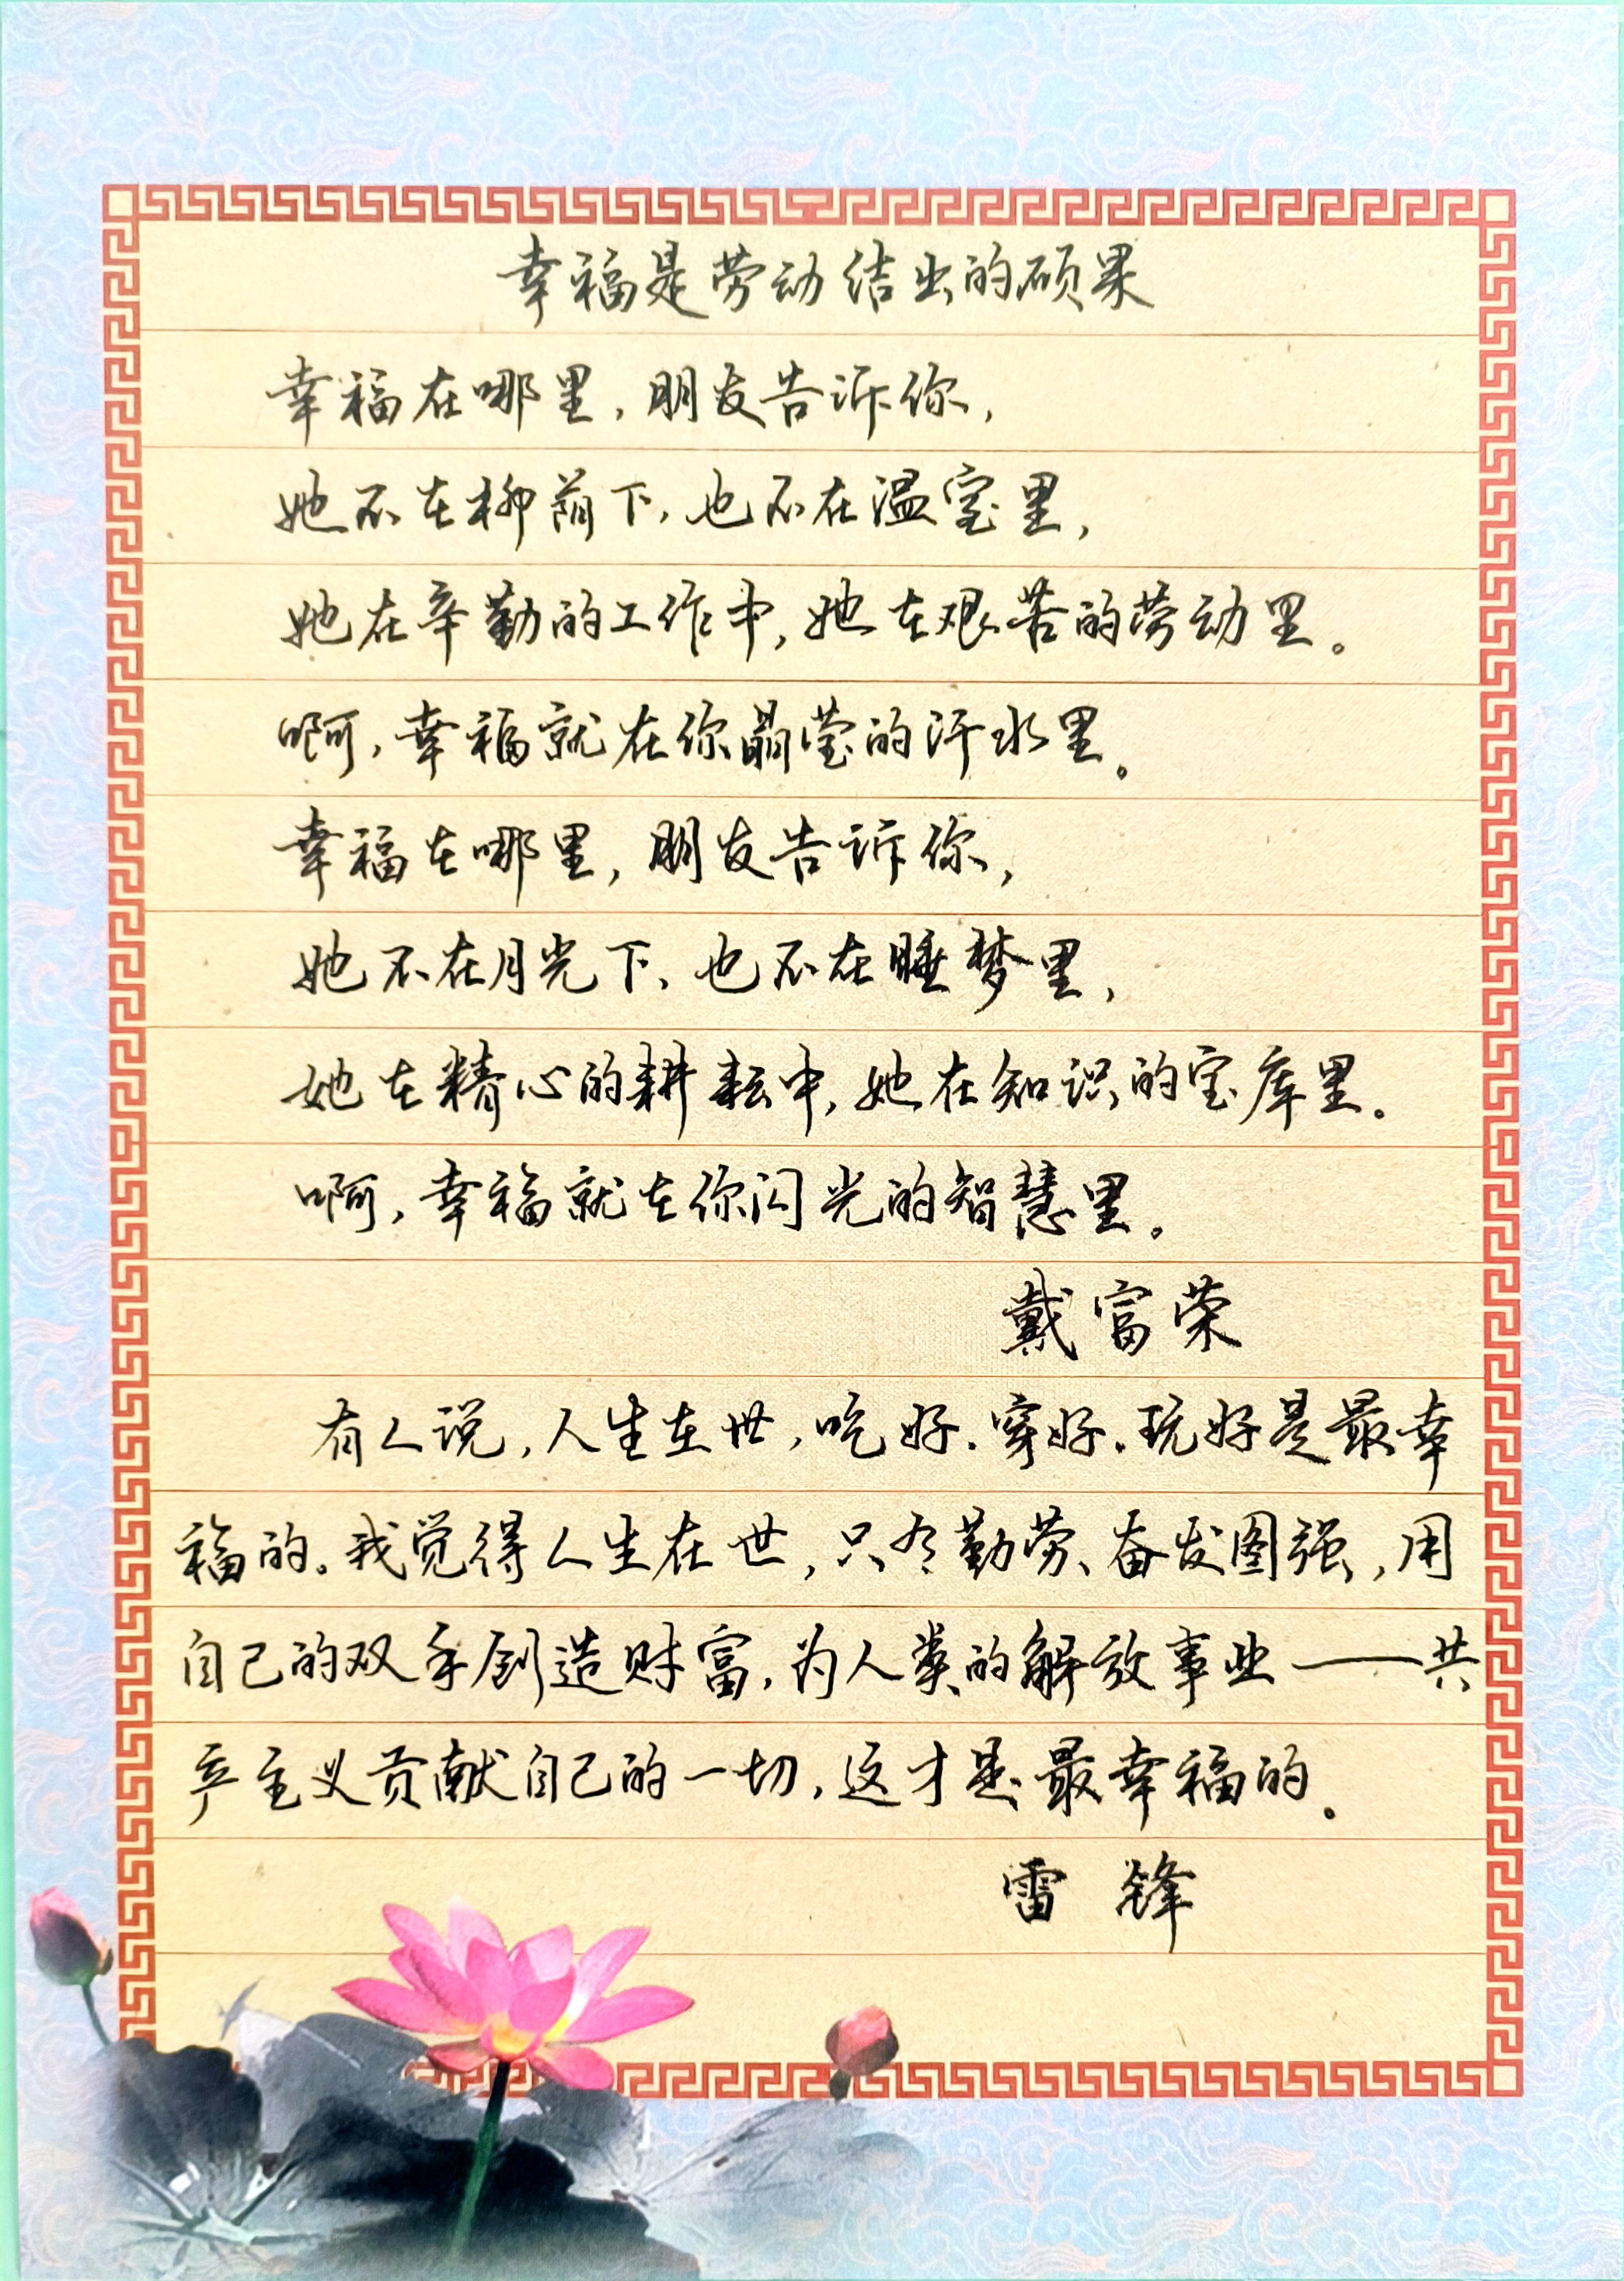 幸福是劳动结出的硕果
幸福在哪里，朋友告诉你，
她不在柳荫下，也不在温室里，
她在辛勤的工作中，她在艰苦的劳动里。
啊，幸福就在你晶莹的汗水里。
幸福在哪里，朋友告诉你，
她不在月光下，也不在睡梦里，
她在精心的耕耘中，她在知识的宝库里。
啊，幸福就在你闪光的智慧里。
戴富荣
有人说，人生在世，吃好、穿好、玩好是最幸
福的。我觉得人生在世，只有勤劳、奋发图强，用
自己的双手创造财富，为人类的解放事业——共
产主义贡献自己的一切，这才是最幸福的。
雷锋